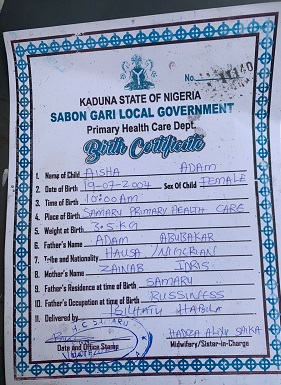 No. 11140
KADUNA STATE OF NIGERIA
SABON GARI LOCAL GOVERNMENT
Primary Health Care Dept.
Birth Certificate
1. Name of Child AISHA ADAM
2. Date of Birth 19-07-2004 Sex Of Child FEMALE
3. Time of Birth 10:00am
4. Place of Birth SAMARU PRIMARY HEALTH CARE
5. Weight at Birth 3.5KG
6. Father's Name ADAM ABUBAKAR
7. Tribe and Nationality HAUSA / NIGERIAN
8. Mother's Name ZAINAB IDRIS
9. Father's Residence at time of Birth SAMARU
10. Father's Occupation at time of Birth BUSSINESS
11. Delivered by HABILA
HADIZA ALIYU
Date and Office Stamp Midwifery/Sister-in-Charge